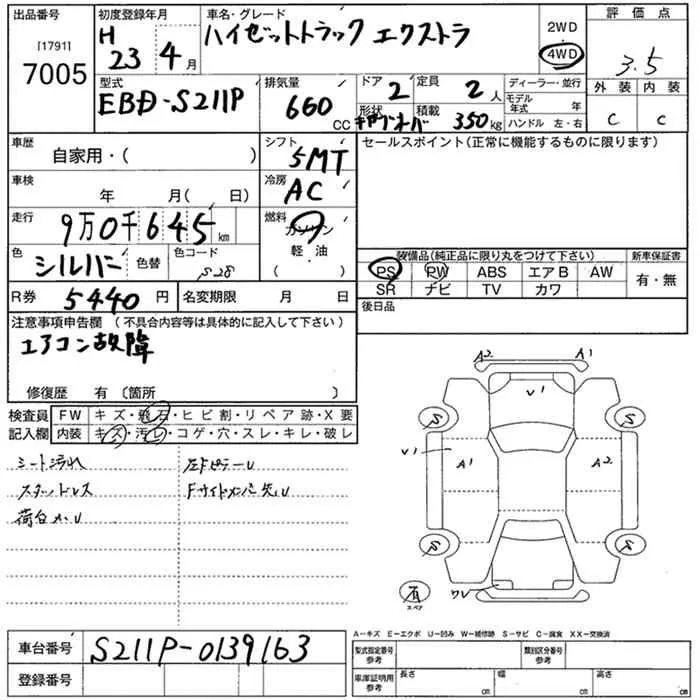 出品番号 [1791] 7005
初度登録年月 H 23 4月
車名・グレード ハイゼットトラック エクストラ
2WD 4WD
評価点 3.5
外装 内装
C C
型式 EBD-S211P
排気量 660 CC
ドア 2 定員 2人
形状 積載 350kg
ディーラー・並行
モデル年式 年
ハンドル 左・右
車歴 自家用・( )
シフト 5MT
セールスポイント(正常に機能するものに限ります)
車検 年 月( 日)
冷房 AC
走行 9万0千645km
燃料 ガソリン 軽・油 ( )
色 シルバー 色替 色コード S28
装備品(純正品に限り丸をつけて下さい)
PS PW ABS エアB AW
SR ナビ TV カワ
新車保証書 有・無
R券 5440円
名変期限 月 日
後日品
注意事項申告欄 (不具合内容等は具体的に記入して下さい)
エアコン故障
修復歴 有 〔箇所 〕
検査員記入欄
FW キズ・飛石・ヒビ割・リペア跡・X要
内装 キズ・汚レ・コゲ・穴・スレ・キレ・破レ
シート汚れ
スタッドレス
A2 A1
V1
S S
V1 A1 A2
S S
有 スペア
A-キズ E-エクボ U-凹み W-補修跡 S-サビ C-腐食 XX-交換済
車台番号 S211P-0139163
登録番号
型式指定番号 参考
類別区分番号 参考
車庫証明用 参考
長さ cm 幅 cm 高さ cm